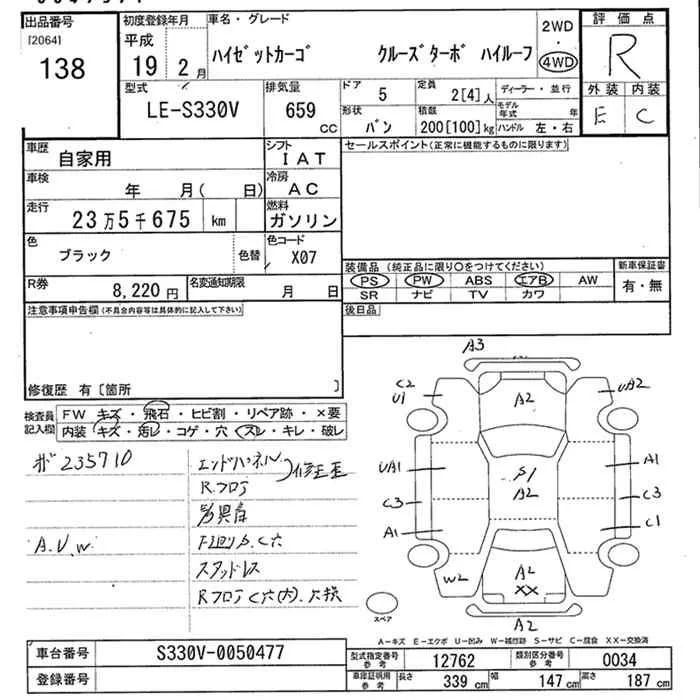 出品番号
[2064]
138
初度登録年月
平成
19年 2月
車名・グレード
ハイゼットカーゴ クルーズターボ ハイルーフ
2WD
・
4WD
評価点
R
外装 内装
E C
型式
LE-S330V
排気量
659 cc
ドア 5
定員 2[4]人
形状 バン
積載 200[100]kg
ディーラー・並行
モデル年式 年
ハンドル 左・右
車歴 自家用
シフト IAT
車検 年 月( 日)
冷房 AC
走行 23万5千675 km
燃料 ガソリン
色 ブラック 色替
色コード X07
R券 8,220円
名変通知期限 月 日
セールスポイント(正常に機能するものに限ります)
装備品 (純正品に限り○をつけてください)
PS PW ABS エアB AW
SR ナビ TV カワ
新車保証書
有・無
後日品
注意事項申告欄(不具合内容等は具体的に記入して下さい)
修復歴 有[箇所 ]
検査員記入欄
FW キズ・飛石・ヒビ割・リペア跡・×要
内装 キズ・汚レ・コゲ・穴・スレ・キレ・破レ
235710
A.V.W.
エンドパネル
Rフロア
修正歪
異音
下回りS.C穴
スタッドレス
RフロアC穴(内).
A3
C2
U1
A2
UA2
UA1
S1
A2
A1
C3
C3
A1
C1
W2
A2
XX
A2
スペア
A-キズ E-エクボ U-凹み W-補修跡 S-サビ C-腐食 XX-交換済
車台番号 S330V-0050477
登録番号
型式指定番号 参考 12762
類別区分番号 参考 0034
車庫証明用 参考
長さ 339 cm
幅 147 cm
高さ 187 cm